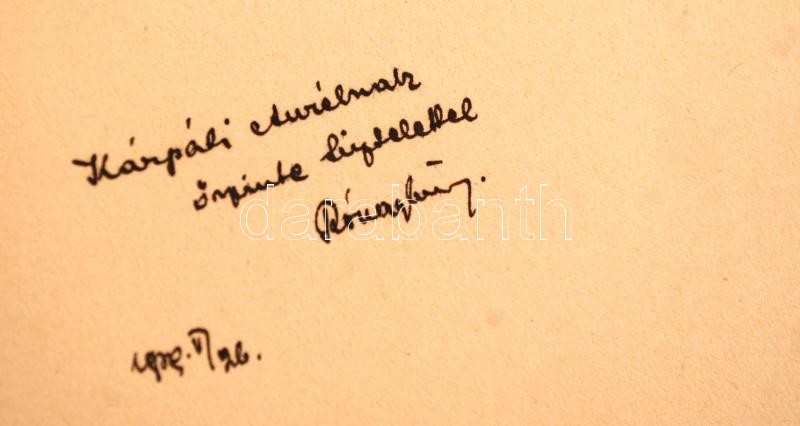 Kárpáti Aurélnak
őszinte tisztelettel
darabanth
VI/26.